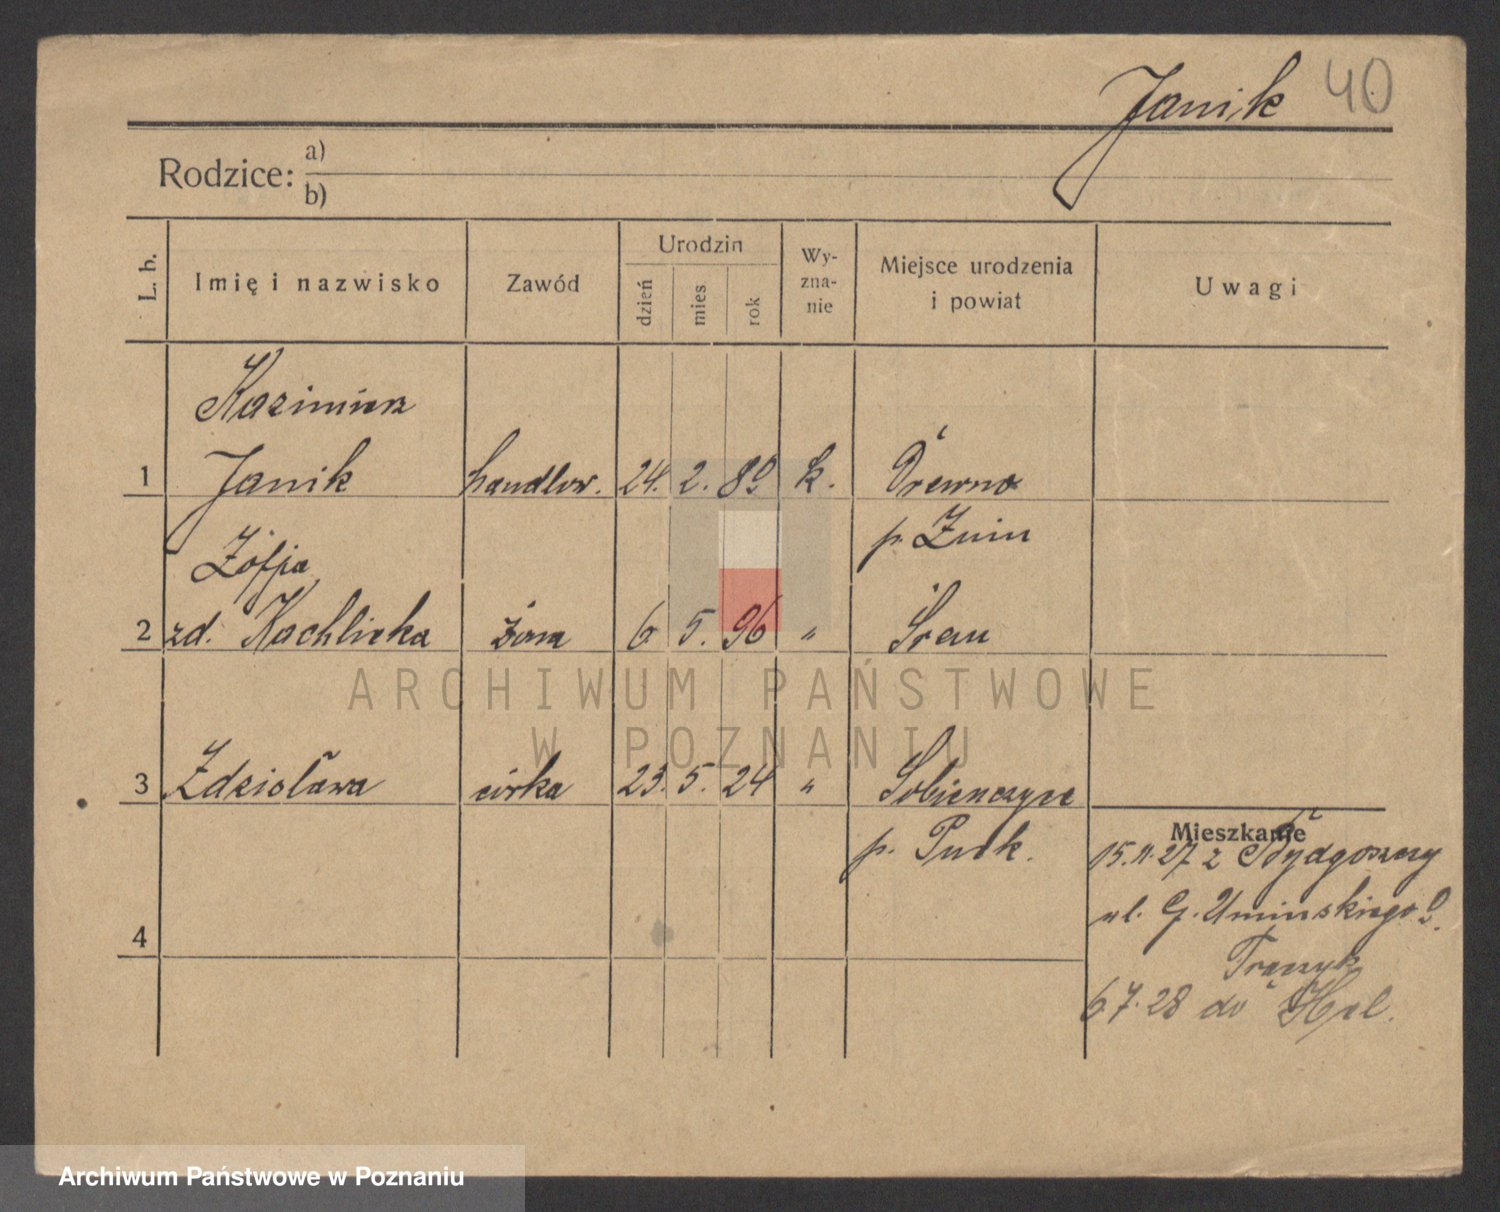 Janik 40
Rodzice: a)
b)
L. b. Imię i nazwisko Zawód Urodzin dzień mies rok Wy-zna-nie Miejsce urodzenia i powiat Uwagi
Kazimierz
1 Janik handlow. 24. 2. 89 k. Drewno
p. Żnin
Zófja
2 zd. Kachlicka żona 6. 5. 96 " Śrem
3 Zdzisława córka 23. 5. 24 "
p. Puck.
Mieszkanie
15.11.27 z Bydgoszczy
ul. G. Umińskiego
4
6.7.28 do Hel.
ARCHIWUM PAŃSTWOWE
W POZNANIU
Archiwum Państwowe w Poznaniu